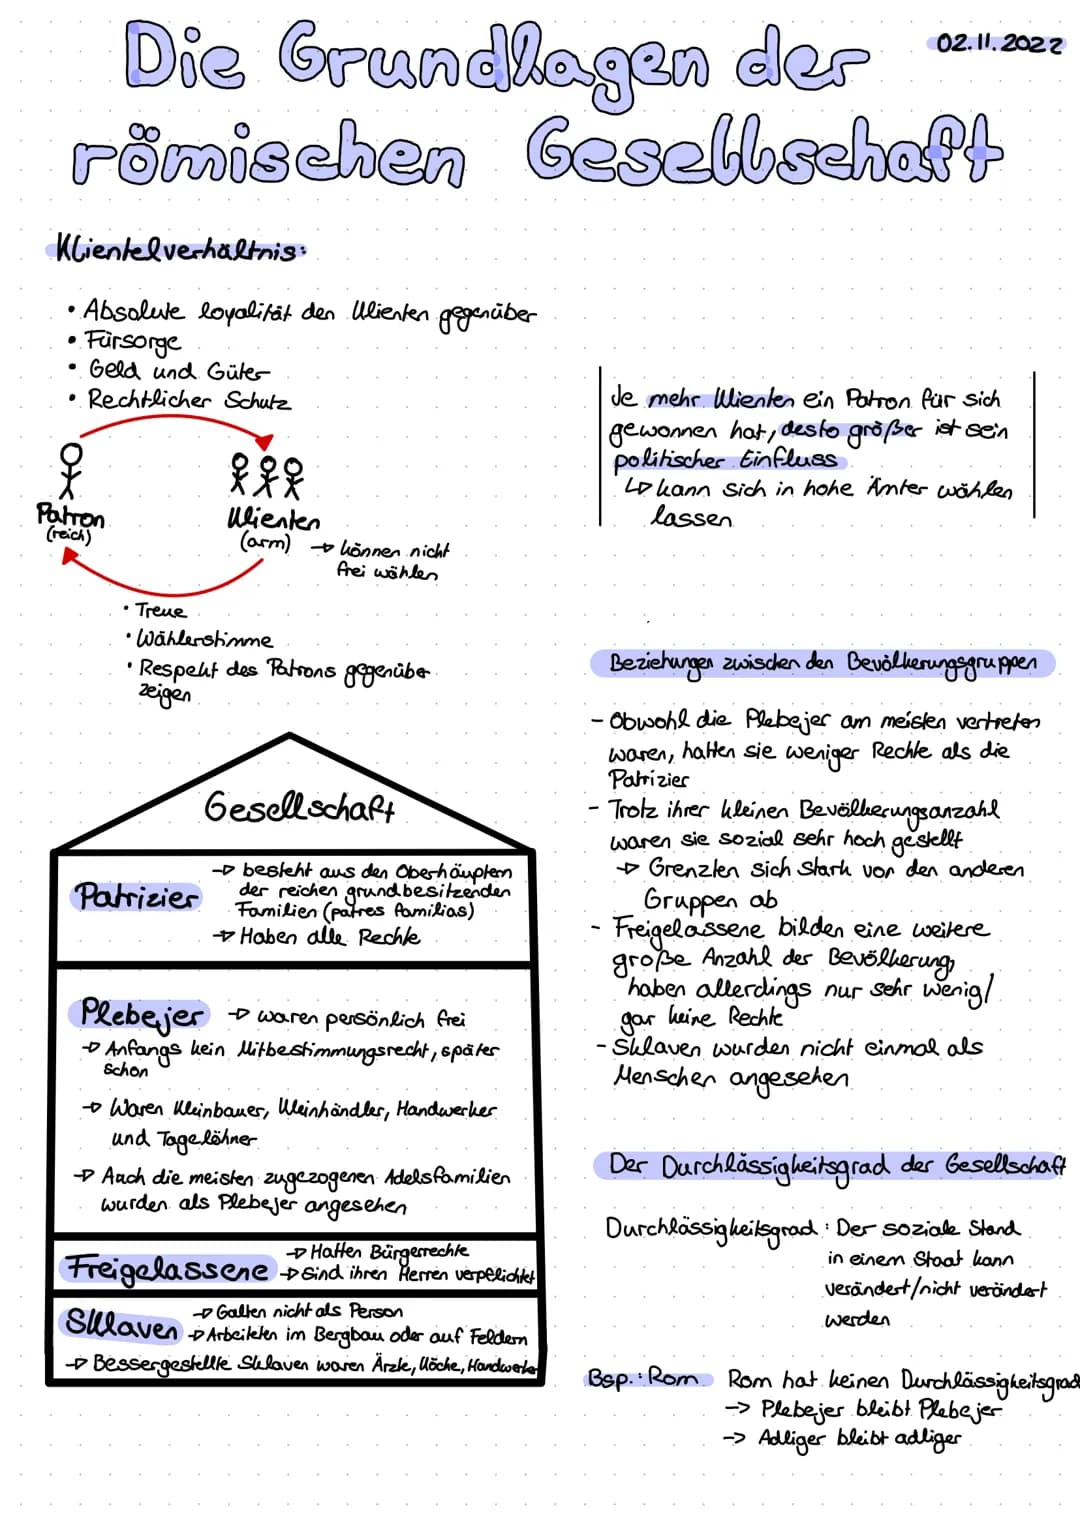 Die Grundlagen der
02.11.2022
römischen Gesellschaft
Klientelverhältnis:
• Absolute loyalität den Klienten gegenüber
• Fürsorge
• Geld und Güter
• Rechtlicher Schutz
Patron
(reich)
Klienten
(arm)
→ können nicht
frei wählen
• Treue
• Wählerstimme
• Respekt des Patrons gegenüber
zeigen
Je mehr Klienten ein Patron für sich
gewonnen hat, desto größer ist sein
politischer Einfluss
↳ kann sich in hohe Ämter wählen
lassen
Gesellschaft
Patrizier
→ besteht aus den Oberhäuptern
der reichen grundbesitzenden
Familien (patres familias)
→ Haben alle Rechte
Plebejer → waren persönlich frei
→ Anfangs kein Mitbestimmungsrecht, später
schon
→ Waren Kleinbauer, Kleinhändler, Handwerker
und Tagelöhner
→ Auch die meisten zugezogenen Adelsfamilien
wurden als Plebejer angesehen
Freigelassene
→ Hatten Bürgerrechte
→ Sind ihren Herren verpflichtet
Sklaven
→ Galten nicht als Person
→ Arbeiteten im Bergbau oder auf Feldern
→ Bessergestellte Sklaven waren Ärzte, Köche, Handwerker
Beziehungen zwischen den Bevölkerungsgruppen
- Obwohl die Plebejer am meisten vertreten
waren, hatten sie weniger Rechte als die
Patrizier
- Trotz ihrer kleinen Bevölkerungsanzahl
waren sie sozial sehr hoch gestellt
→ Grenzten sich stark von den anderen
Gruppen ab
- Freigelassene bilden eine weitere
große Anzahl der Bevölkerung,
haben allerdings nur sehr wenig/
gar keine Rechte
- Sklaven wurden nicht einmal als
Menschen angesehen
Der Durchlässigkeitsgrad der Gesellschaft
Durchlässigkeitsgrad: Der soziale Stand
in einem Staat kann
verändert/nicht verändert
werden
Bsp.: Rom Rom hat keinen Durchlässigkeitsgrad
-> Plebejer bleibt Plebejer
-> Adliger bleibt adliger